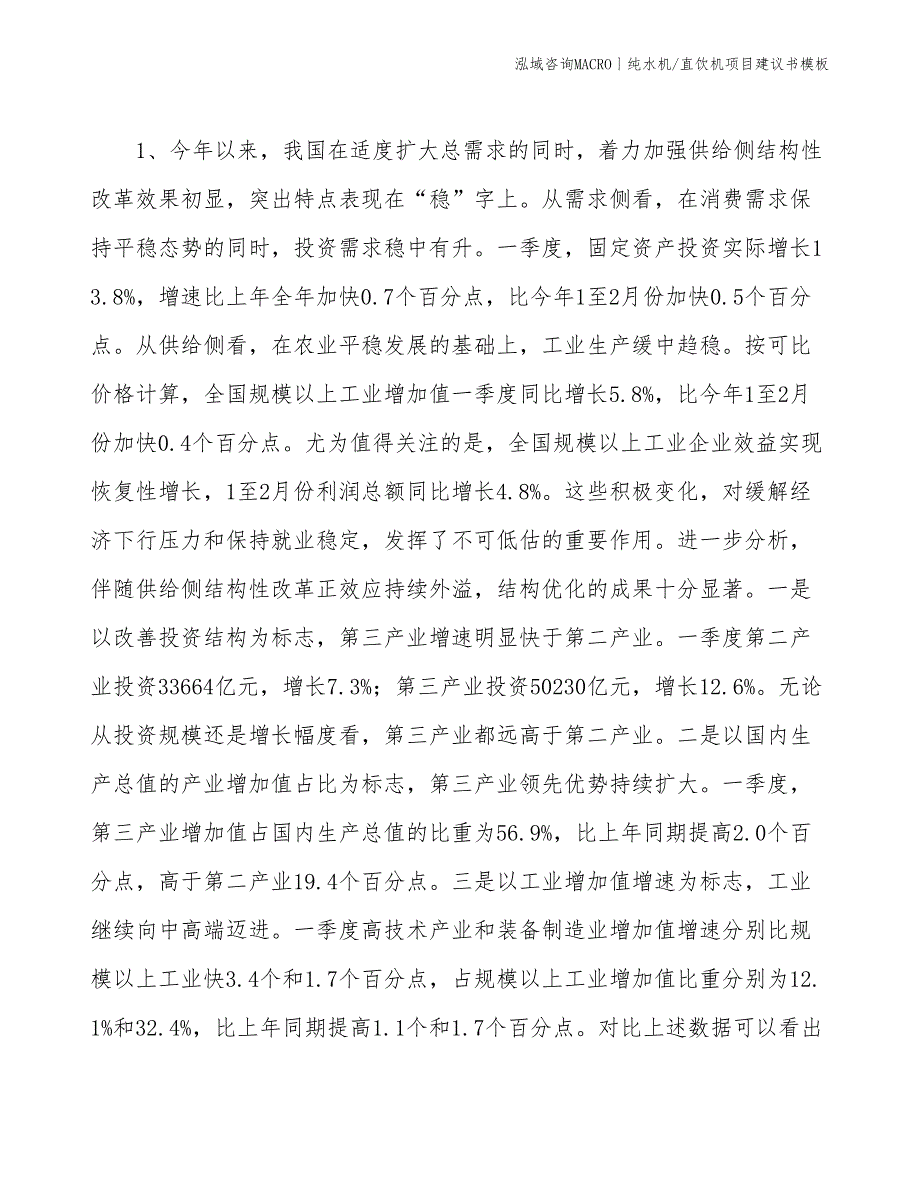 泓域咨询MACRO丨纯水机/直饮机项目建议书模板
1、今年以来，我国在适度扩大总需求的同时，着力加强供给侧结构性
改革效果初显，突出特点表现在“稳”字上。从需求侧看，在消费需求保
持平稳态势的同时，投资需求稳中有升。一季度，固定资产投资实际增长1
3.8%，增速比上年全年加快0.7个百分点，比今年1至2月份加快0.5个百分
点。从供给侧看，在农业平稳发展的基础上，工业生产缓中趋稳。按可比
价格计算，全国规模以上工业增加值一季度同比增长5.8%，比今年1至2月
份加快0.4个百分点。尤为值得关注的是，全国规模以上工业企业效益实现
恢复性增长，1至2月份利润总额同比增长4.8%。这些积极变化，对缓解经
济下行压力和保持就业稳定，发挥了不可低估的重要作用。进一步分析，
伴随供给侧结构性改革正效应持续外溢，结构优化的成果十分显著。一是
以改善投资结构为标志，第三产业增速明显快于第二产业。一季度第二产
业投资33664亿元，增长7.3%；第三产业投资50230亿元，增长12.6%。无论
从投资规模还是增长幅度看，第三产业都远高于第二产业。二是以国内生
产总值的产业增加值占比为标志，第三产业领先优势持续扩大。一季度，
第三产业增加值占国内生产总值的比重为56.9%，比上年同期提高2.0个百
分点，高于第二产业19.4个百分点。三是以工业增加值增速为标志，工业
继续向中高端迈进。一季度高技术产业和装备制造业增加值增速分别比规
模以上工业快3.4个和1.7个百分点，占规模以上工业增加值比重分别为12.
1%和32.4%，比上年同期提高1.1个和1.7个百分点。对比上述数据可以看出